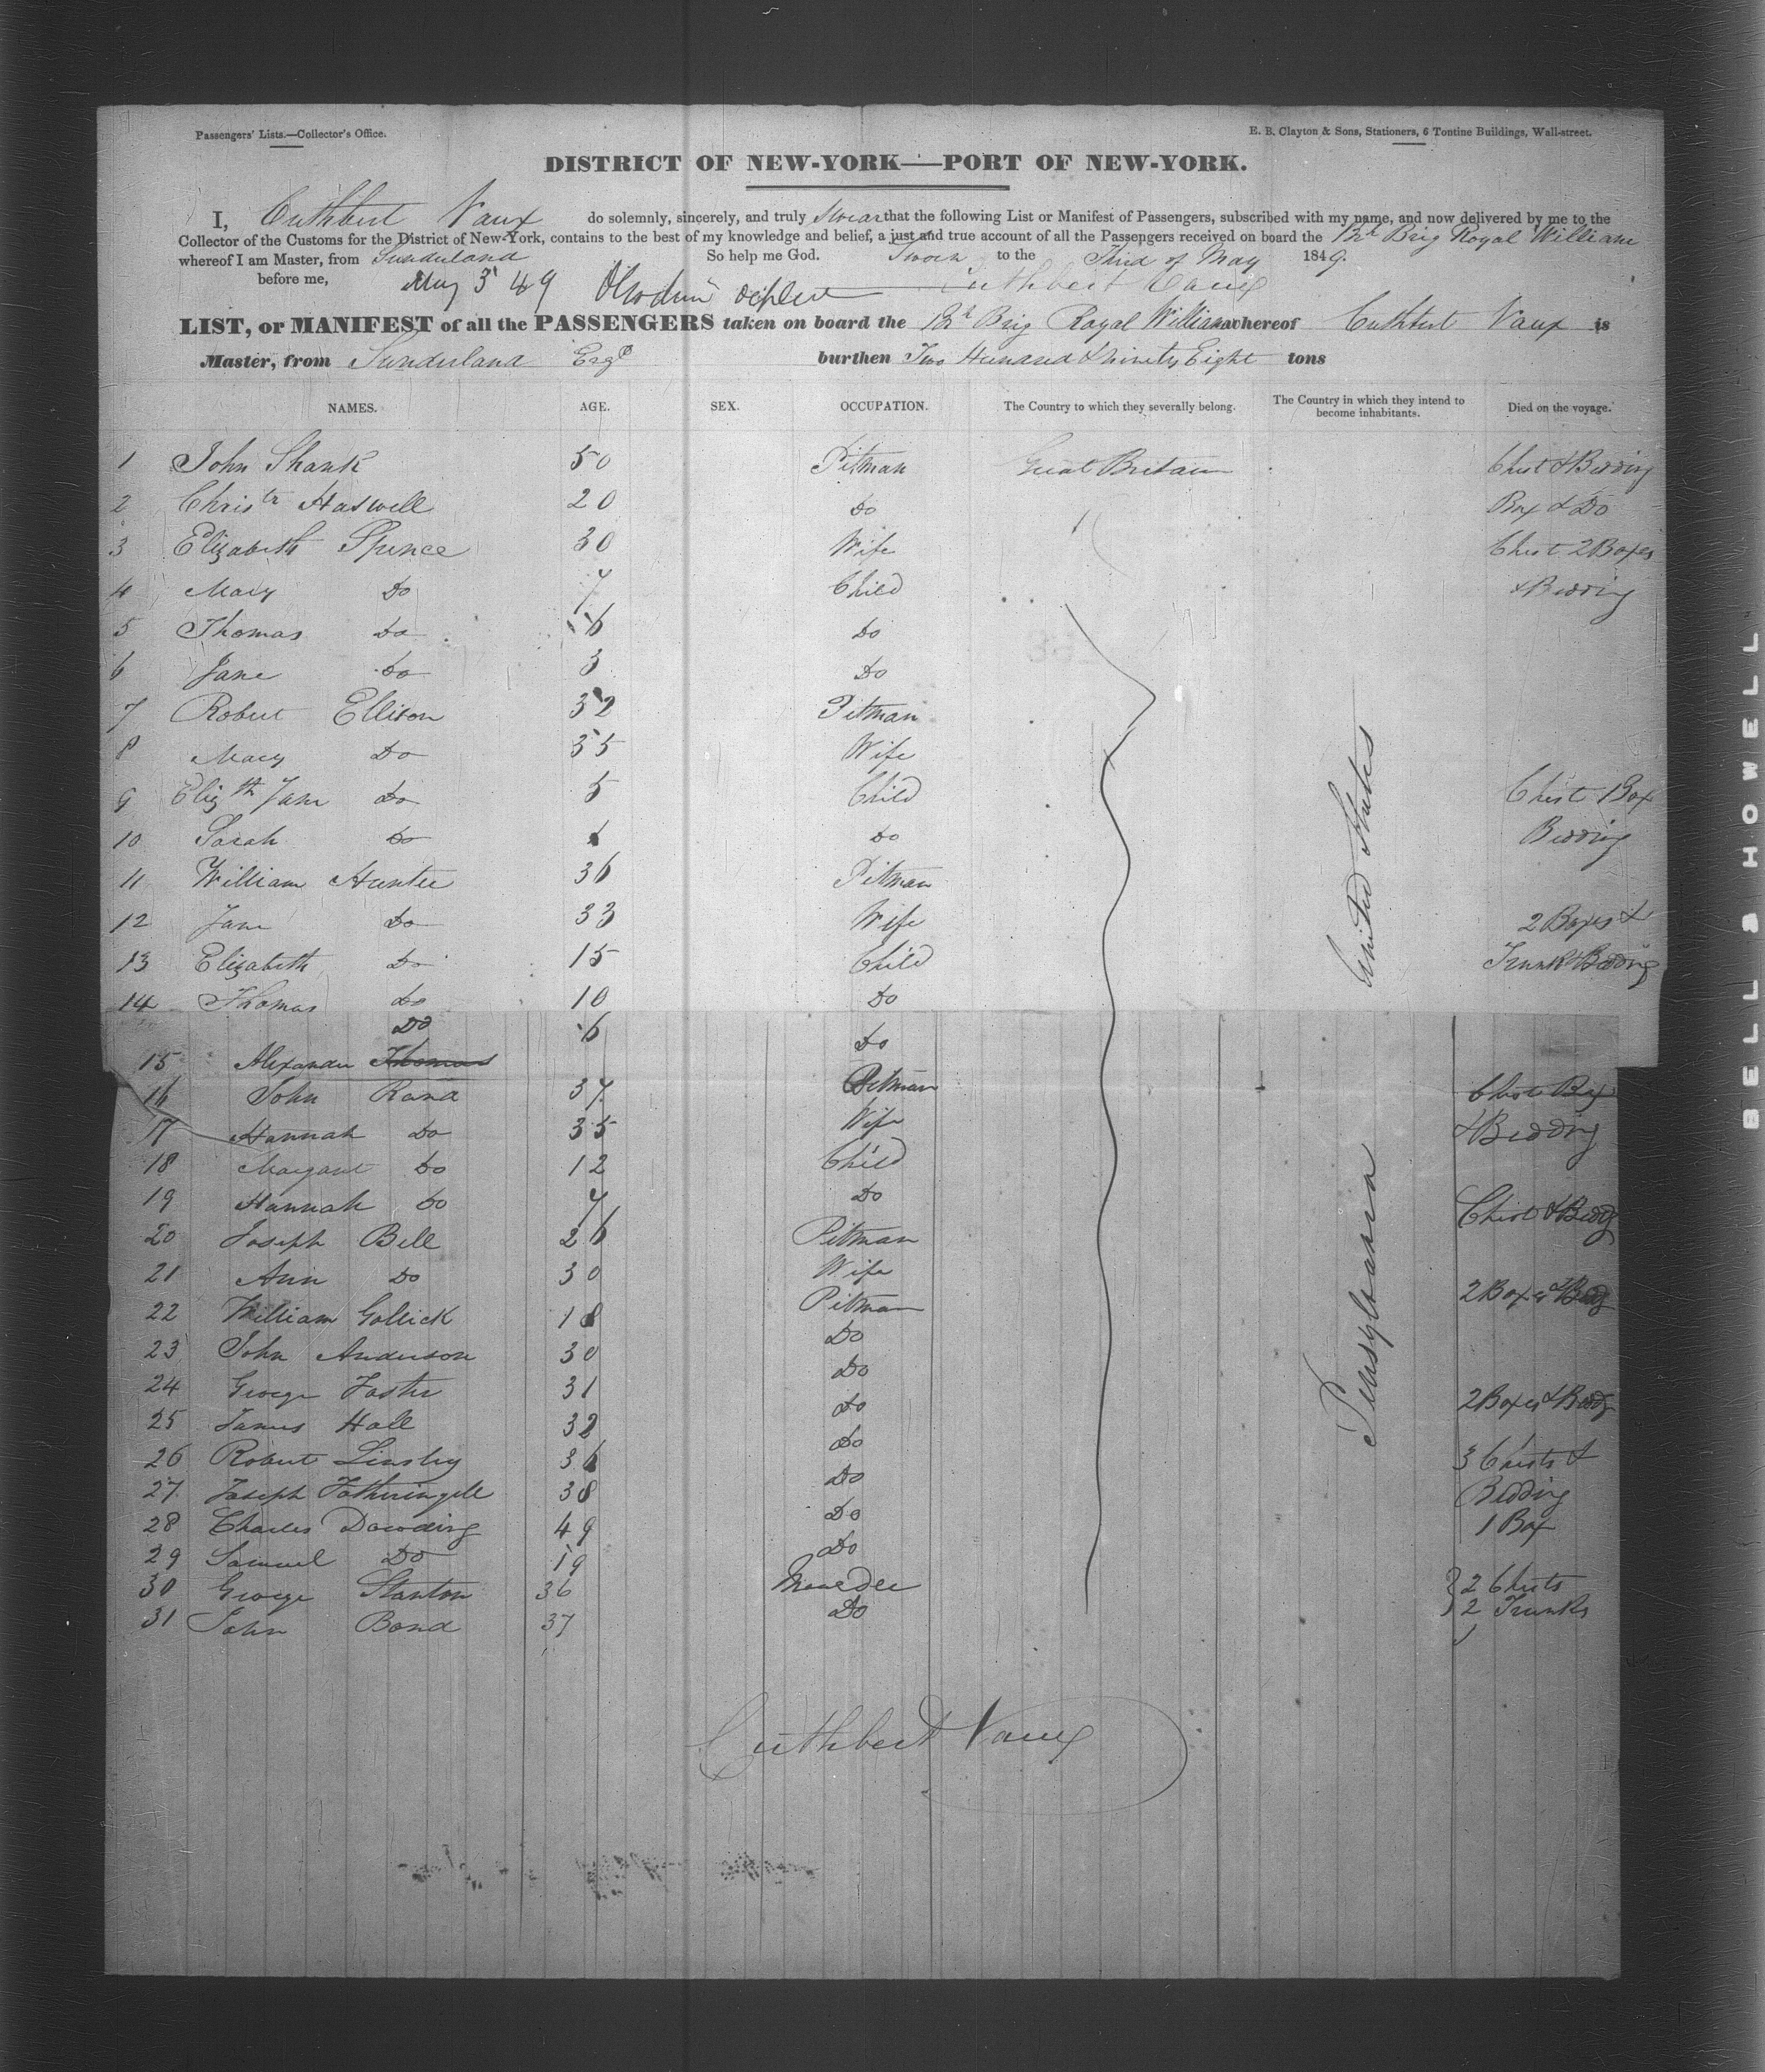 Passengers' Lists.—Collector's Office.
E. B. Clayton & Sons, Stationers, 6 Tontine Buildings, Wall-street.
DISTRICT OF NEW-YORK—PORT OF NEW-YORK.
I, Cuthbert Vaux do solemnly, sincerely, and truly swear that the following List or Manifest of Passengers, subscribed with my name, and now delivered by me to the
Collector of the Customs for the District of New-York, contains to the best of my knowledge and belief, a just and true account of all the Passengers received on board the Bh Brig Royal William
whereof I am Master, from Sunderland So help me God. Sworn to the Third of May 1849.
before me, May 3 49 Cuthbert Vaux
LIST, or MANIFEST of all the PASSENGERS taken on board the Bh Brig Royal William whereof Cuthbert Vaux is
Master, from Sunderland Engd burthen Two Hundred & Ninety Eight tons
NAMES. AGE. SEX. OCCUPATION. The Country to which they severally belong. The Country in which they intend to become inhabitants. Died on the voyage.
1 John Shank 50 Pitman Great Britain Chest & Bedding
2 Christr Haswell 20 Do Box & Do
3 Elizabeth Spence 30 Wife Chest 2 Boxes
4 Mary Do 7 Child & Bedding
5 Thomas Do 6 Do
6 Jane Do 3 Do
7 Robert Ellison 32 Pitman
8 Mary Do 35 Wife
9 Elizth Jane Do 5 Child Chest 1 Box
10 Sarah Do Do Bedding
11 William Hunter 36 Pitman
12 Jane Do 33 Wife 2 Boxes &
13 Elizabeth Do 15 Child Trunk & Bedding
14 Thomas Do 10 Do
15 Alexander Thomas Do 6 Do
16 John Rand 37 Pitman Chest Box
17 Hannah Do 35 Wife & Bedding
18 Margaret Do 12 Child
19 Hannah Do 7 Do Chest & Bedg
20 Joseph Bell 26 Pitman
21 Ann Do 30 Wife 2 Boxes & Bedg
22 William Gollick 18 Pitman
23 John Anderson 30 Do
24 George Foster 31 Do 2 Boxes & Bedg
25 James Hall 32 Do
26 Robert Linsley 36 Do 3 Chests &
27 Joseph Fotheringill 38 Do Bedding
28 Charles Dowding 49 Do 1 Box
29 Samuel Do 19 Do
30 George Stanton 36 2 Chests
31 John Bond 37 Do 2 Trunks
United States
Pensylvania
Cuthbert Vaux
BELL & HOWELL